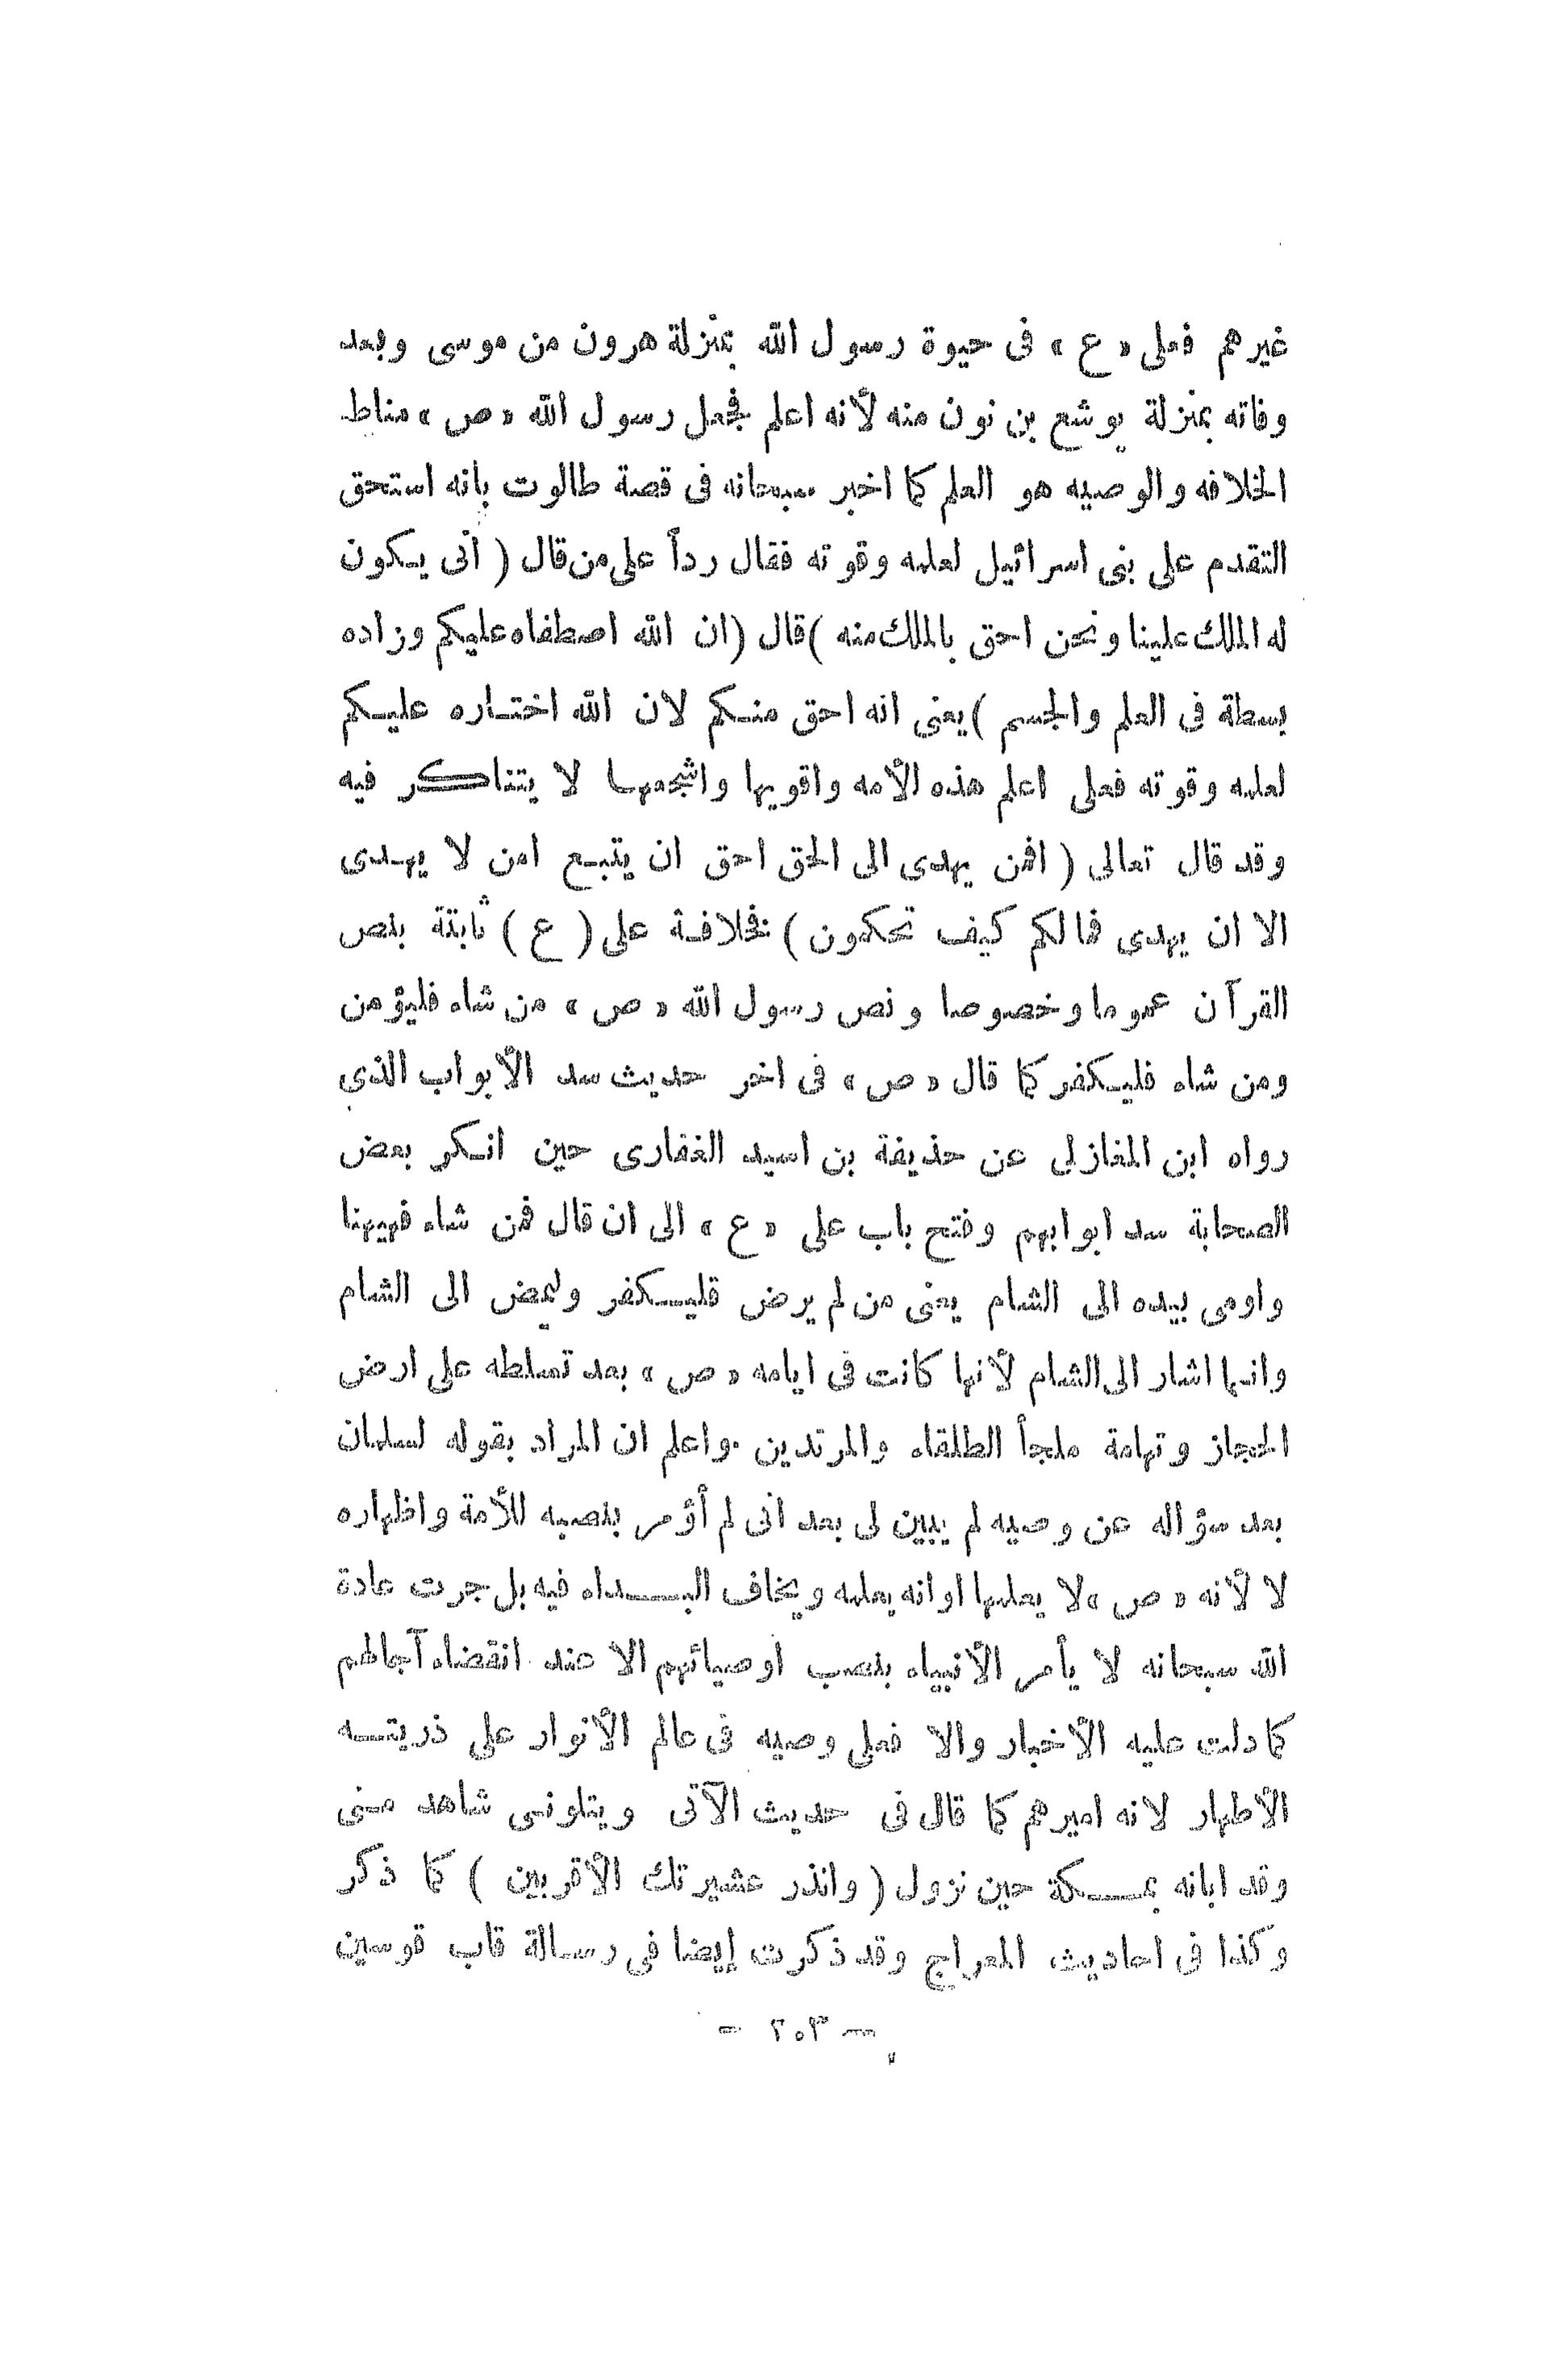 غيرهم فعلى « ع » فى حيوة رسول الله بمنزلة هرون من موسى وبعد
وفاته بمنزلة يوشع بن نون منه لأنه اعلم فجعل رسول الله « ص » مناط
الخلافه والوصيه هو العلم كما اخبر سبحانه فى قصة طالوت بانه استحق
التقدم على بنى اسرائيل لعلمه وقوته فقال رداً على من قال ( أنى يكون
له الملك علينا ونحن احق بالملك منه ) قال ( ان الله اصطفاه عليكم وزاده
بسطة فى العلم والجسم ) يعنى انه احق منكم لان الله اختاره عليكم
لعلمه وقوته فعلى اعلم هذه الأمه واقويها واشجعها لا يتناكر فيه
وقد قال تعالى ( افمن يهدى الى الحق احق ان يتبع امن لا يهدى
الا ان يهدى فمالكم كيف تحكمون ) فخلافة على ( ع ) ثابتة بنص
القرآن عموما وخصوصا ونص رسول الله « ص » من شاء فليؤمن
ومن شاء فليكفر كما قال « ص » فى اخر حديث سد الأبواب الذي
رواه ابن المغازلى عن حذيفة بن اسيد الغفارى حين انكر بعض
الصحابة سد ابوابهم وفتح باب على « ع » الى ان قال فمن شاء فهيهنا
واومى بيده الى الشام يعنى من لم يرض فليكفر وليمض الى الشام
وانما اشار الى الشام لأنها كانت فى ايامه « ص » بعد تسلطه على ارض
الحجاز وتهامة ملجأ الطلقاء والمرتدين . واعلم ان المراد بقوله لسلمان
بعد سؤاله عن وصيه لم يبين لى بعد انى لم أؤمر بنصبه للأمة واظهاره
لا لأنه « ص » لا يعلمها اوانه يعلمه ويخاف البداء فيه بل جرت عادة
الله سبحانه لا يأمر الأنبياء بنصب اوصيائهم الا عند انقضاء آجالهم
كما دلت عليه الأخبار والا فعلى وصيه فى عالم الأنوار على ذريته
الأطهار لانه اميرهم كما قال فى حديث الآتى ويتلونى شاهد منى
وقد ابانه بمكة حين نزول ( وانذر عشيرتك الأقربين ) كما ذكر
وكذا فى احاديث المعراج وقد ذكرت إيضا فى رسالة قاب قوسين
— ٢٠٣ —